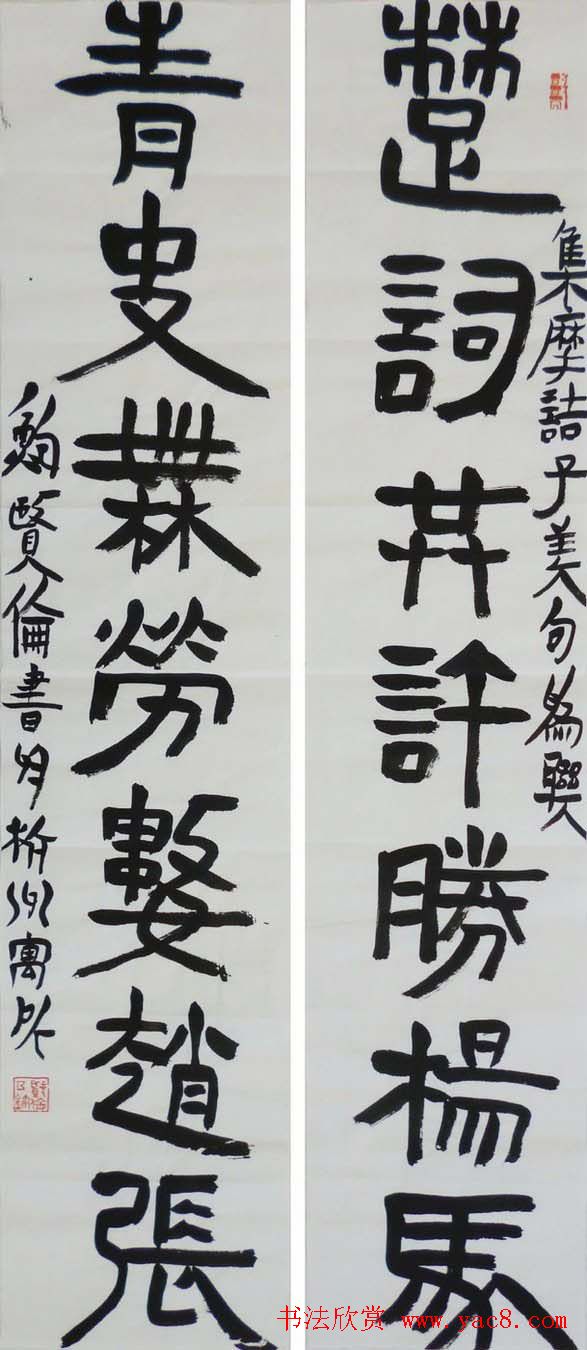 楚詞共許勝楊馬
集摩詰子美句為聯
青史無勞數趙張
賢倫書於揚州寓所
书法欣赏 www.yac8.com